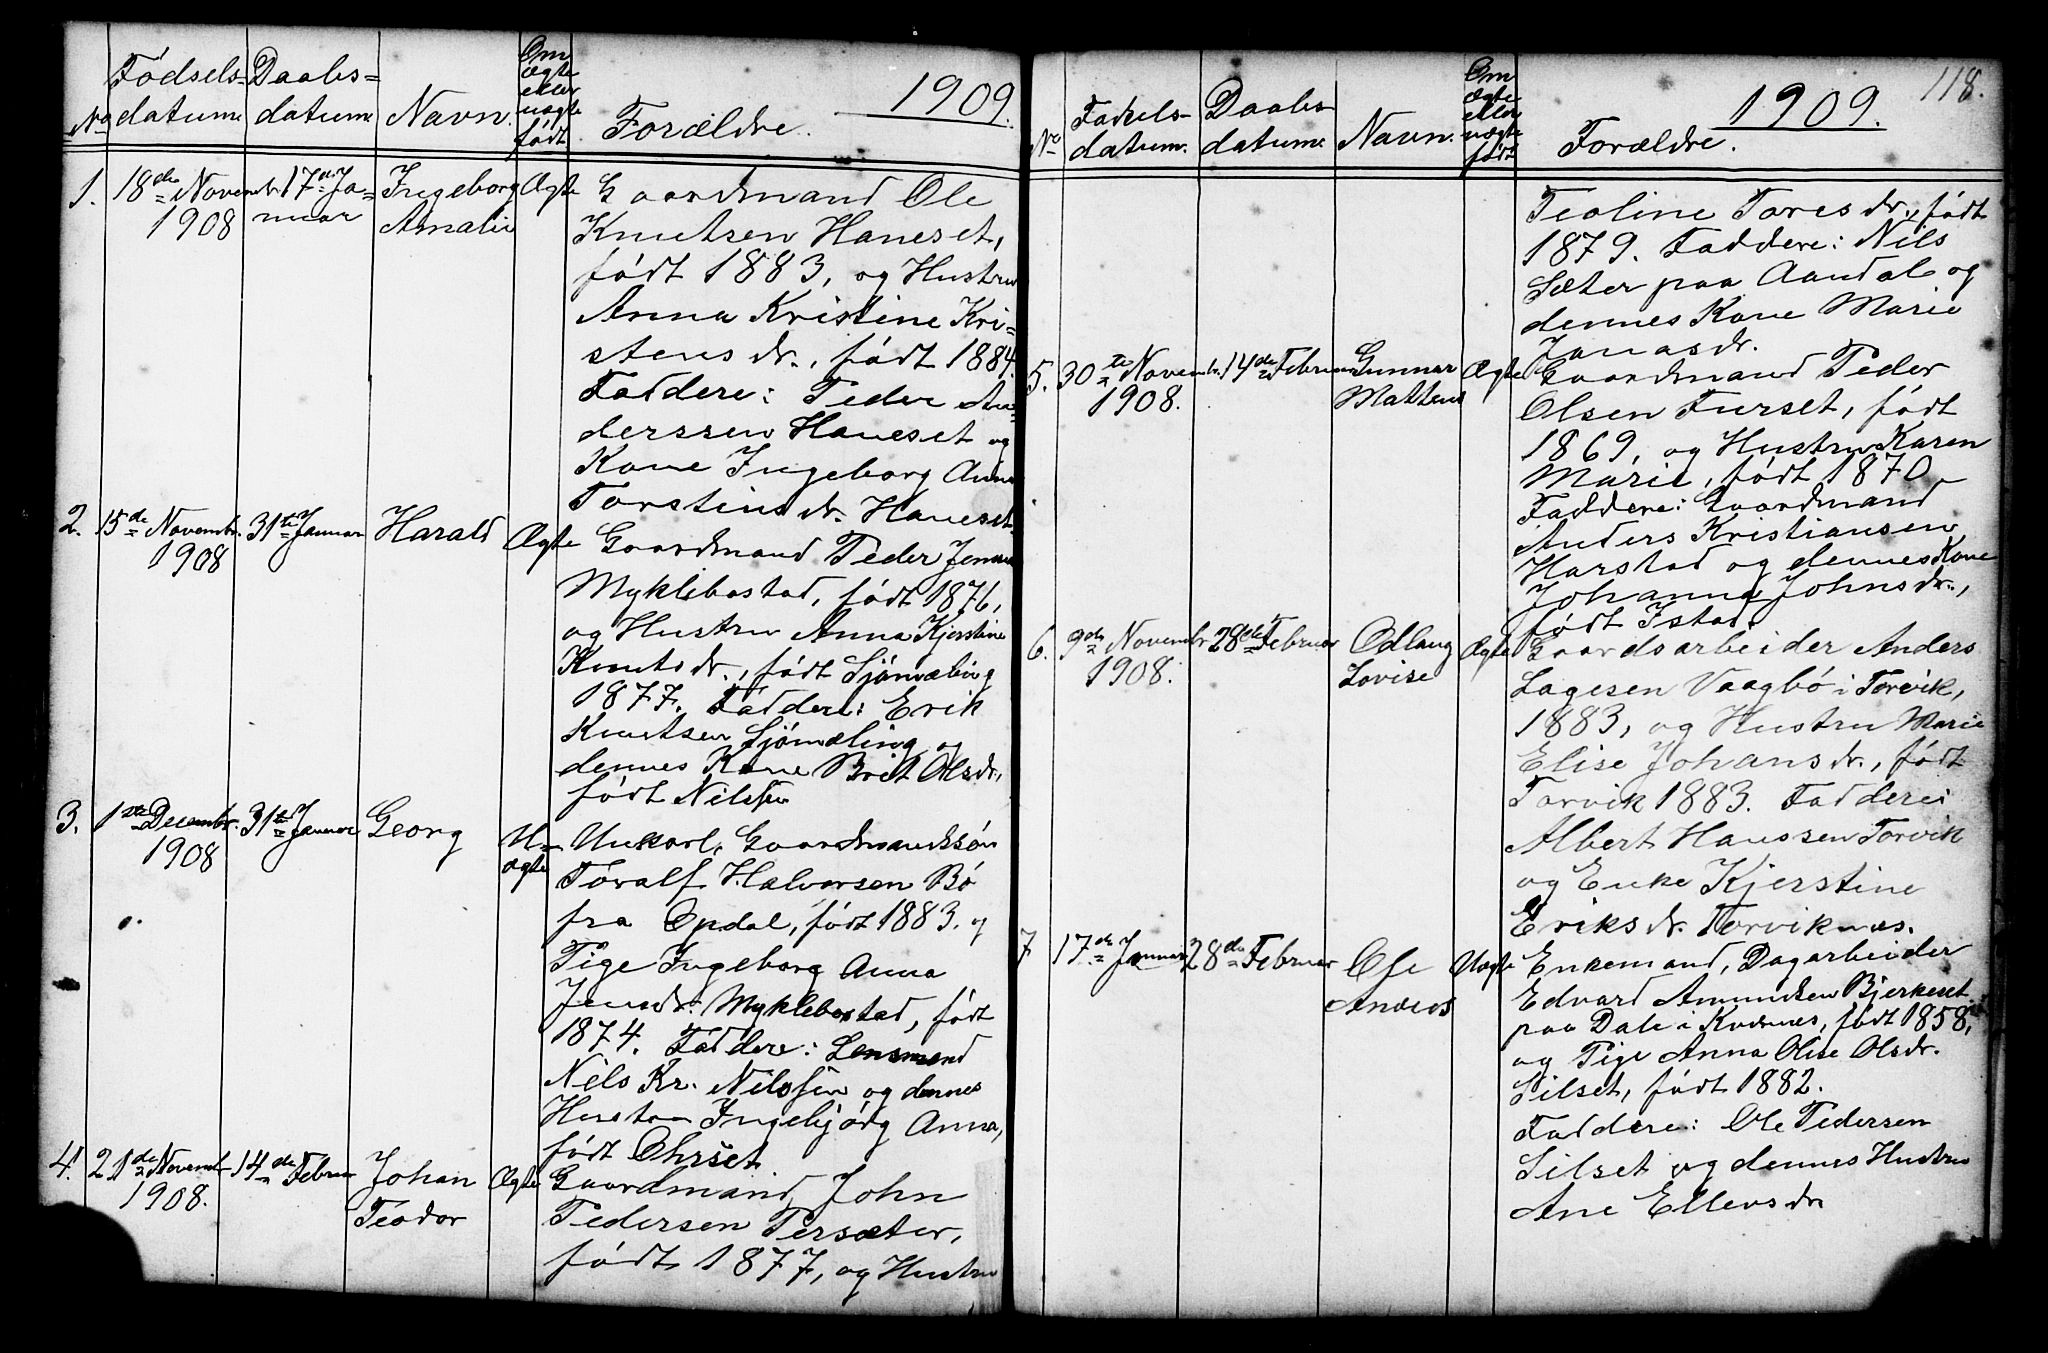 1909.
No
Fødsels-
datum.
Daabs-
datum.
Navn.
Om
ægte
eller
uægte
født
Forældre.
1.
18de Novembr.
1908
17de Ja-
nuar
Ingeborg
Amalie
Ægte
Gaardmand Ole
Knutsen Haneset,
født 1883, og Hustru
Anna Kristine Kri-
stensdr., født 1884.
Faddere: Peder An-
derssen Haneset og
Kone Ingeborg Anna
Torstensdr. Haneset.
2.
15de Novembr.
1908
31te Januar
Harald
Ægte
Gaardmand Peder Jensen
Myklebostad, født 1876,
og Hustru Anna Kjerstine
Knutsdr., født Sjømæling
1877. Faddere: Erik
Knutsen Sjømæling og
dennes Kone Brit Olsdr.,
født Nilsen
3.
1ste Decembr.
1908
31te Januar
Georg
U-
ægte
Unkarl, Gaardmandssøn
Toralf Halvorsen Bø
fra Opdal, født 1883. og
Pige Ingeborg Anna
Jensdr. Myklebostad, født
1874. Faddere: Lensmand
Nils Kr. Nilssen og dennes
Hustru Ingebjørg Anna,
født Ohrset
4.
21de Novembr.
1908.
14de Februar
Johan
Teodor
Ægte
Gaardmand John
Pedersen Persæter,
født 1877, og Hustru
118.
1909.
No
Fødsels-
datum.
Daabs-
datum.
Navn.
Om
ægte
eller
uægte
født
Forældre.
Teoline Toresdr., født
1879. Faddere: Nils
Sæter paa Aandal og
dennes Kone Marie
Jonasdr.
5.
30te Novembr.
1908.
14de Februar
Gunnar
Matteus
Ægte
Gaardmand Peder
Olsen Furset, født
1869, og Hustru Karen
Marie, født 1870
Faddere: Gaardmand
Anders Kristiansen
Harstad og dennes Kone
Johanna Johnsdr.,
født Istad.
6.
9de Novembr.
1908.
28de Februar
Odlaug
Lovise
Ægte
Gaardsarbeider Anders
Lagesen Vaagbø i Torvik,
1883, og Hustru Marie
Elise Johansdr., født
Torvik 1883. Faddere:
Albert Hanssen Torvik
og Enke Kjerstine
Eriksdr. Torviknæs.
7
17de Januar
28de Februar
Ole
Anders
Uægte
Enkemand, Dagarbeider
Edvard Amundsen Bjerkeset
paa Dale i Kvernes, født 1858,
og Pige Anna Olise Olsdr.
Silset, født 1882.
Faddere: Ole Pedersen
Silset og dennes Hustru
Ane Ellensdr.